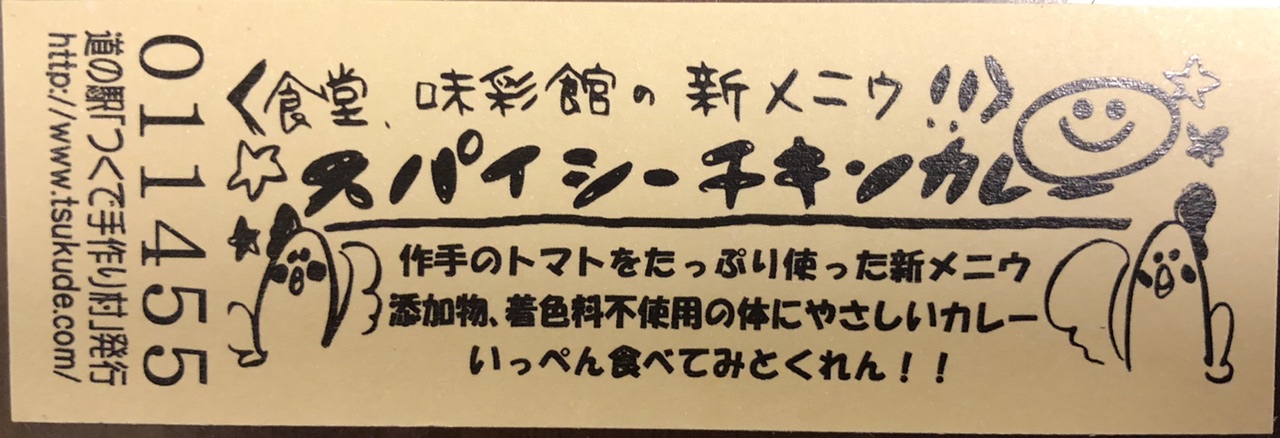 〈食堂、味彩館の新メニウ!!!〉
スパイシーチキンカレー
作手のトマトをたっぷり使った新メニウ
添加物、着色料不使用の体にやさしいカレー
いっぺん食べてみとくれん！！
011455
道の駅「つくで手作り村」発行
http://www.tsukude.com/